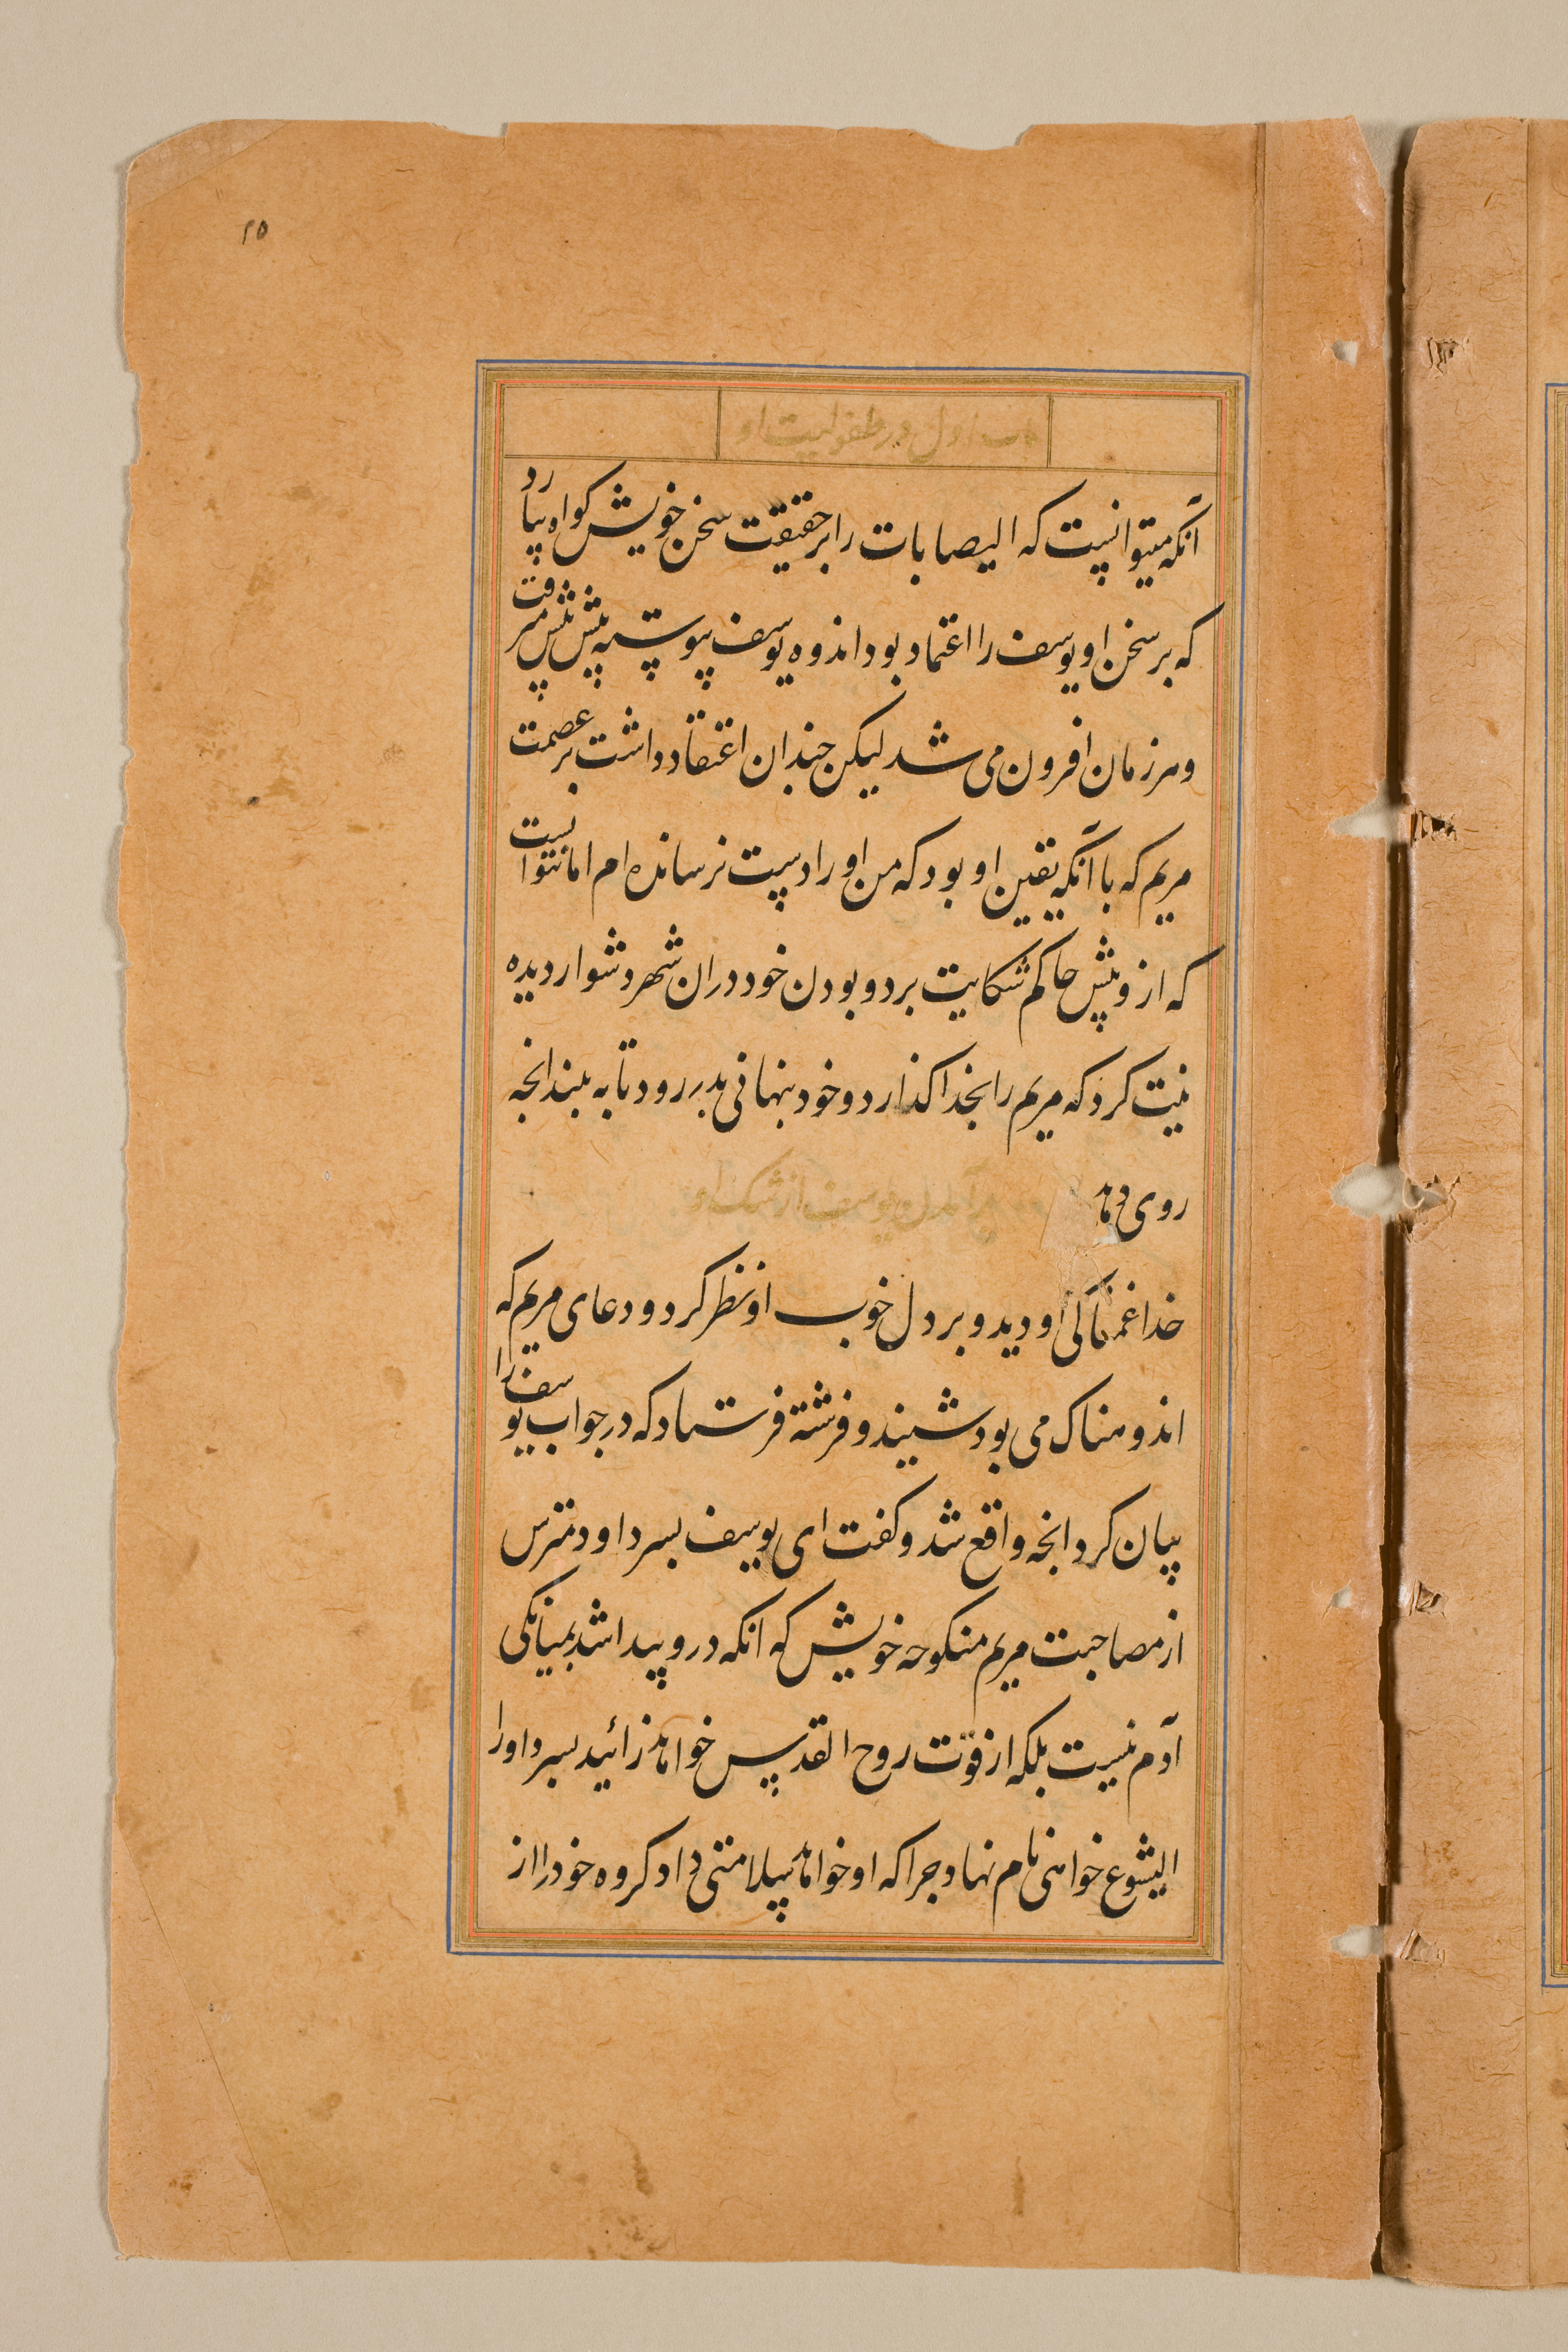 ۲۵
باب اول در طفولیت او
آنکه میتوانست که الیصابات را بر حقیقت سخن خویش کواه بیارد
که بر سخن او یوسف را اعتماد بود اندوه یوسف پیوسته پیش پیش میرفت
و هر زمان افزون می شد لیکن چندان اعتقاد داشت بر عصمت
مریم که با آنکه یقین او بود که من او را دست نرسانده ام اما نتوانست
که از و پیش حاکم شکایت برد و بودن خود دران شهر دشوار دیده
نیت کرد که مریم را بخدا کذارد و خود پنهانی بدر رود تا به بیند انچه
روی دهد
برآمدن یوسف از شک او
خدا غمناکی او دید و بر دل خوب او نظر کرد و دعای مریم که
اندوهناک می بود شنید و فرشته فرستاد که در جواب یوسف را
بیان کرد انچه واقع شد و کفت ای یوسف پسر داود مترس
از مصاحبت مریم منکوحه خویش که انکه درو پیدا شد بمیانکی
آدم نیست بلکه از قوت روح القدس خواهد زائید پسر و او را
الیشوع خواهی نام نهاد چرا که او خواهد سلامتی داد کروه خود را از